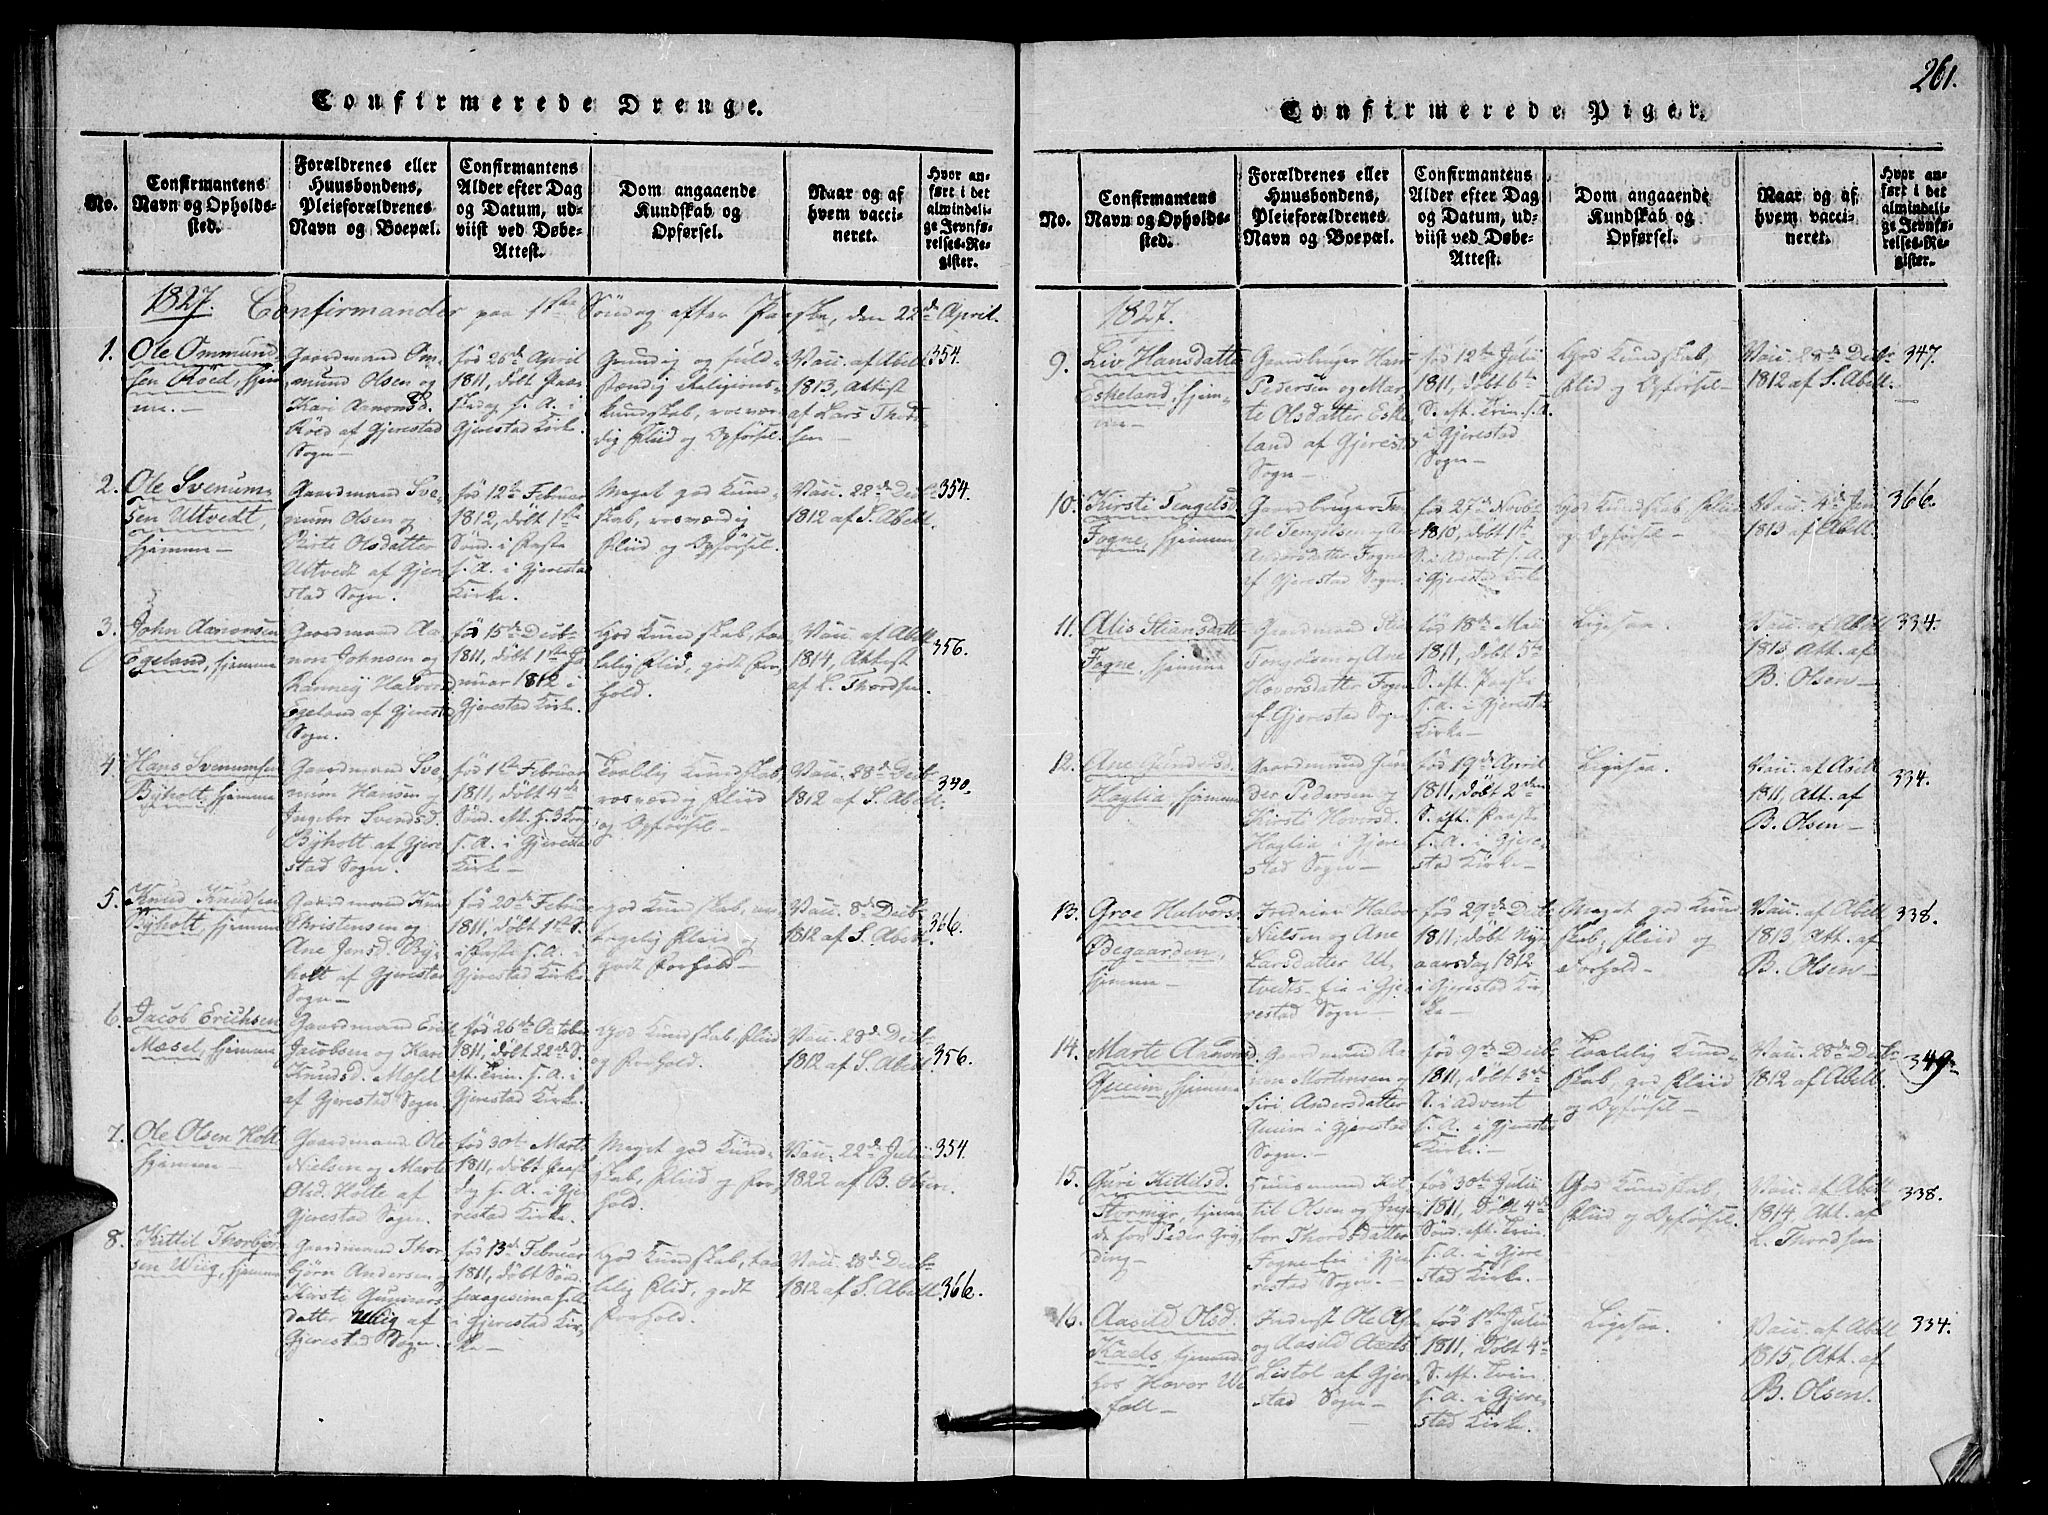 261.
Confirmerede Drenge.
No.
Confirmantens
Navn og Opholds-
sted.
Forældrenes eller
Huusbondens,
Pleieforældrenes
Navn og Boepæl.
Confirmantens
Alder efter Dag
og Datum, ud-
viist ved Døbe-
Attest.
Dom angaaende
Kundskab og
Opførsel.
Naar og af
hvem vacci-
neret.
Hvor an-
ført i det
almindeli-
ge Jevnfø-
relses-Re-
gister.
1827. Confirmander paa 1ste Søndag efter Paaske, den 22de April.
1.
Ole Ommund-
sen Röed, hjem-
me.
Gaardmand Om-
mund Olsen og
Kari Aanonsd.
Röed af Gjerestad
Sogn
fød 26de April
1811, döbt Paa-
skedag s. A. i
Gjerestad Kirke.
Grundig og fuld-
stændig Religions-
kundskab, rosvær-
dig Fliid og Opførsel.
Vacc. af Abell
1813, Attest
af Lars Thord-
sen
354.
2.
Ole Svenum-
sen Ultvedt,
hjemme
Gaardmand Sve-
num Olsen og
Olsdatter
Ultvedt af Gjere-
stad Sogn.
fød 12te Februar
1812, döbt 1ste
Sönd. i Faste
s. A. i Gjerestad
Kirke.
Meget god Kund-
skab, rosværdig
Fliid og Opförsel.
Vacc. 22de Decbr
1812 af S. Abell.
354.
3.
John Aanonsen
Egeland, hjemme
Gaardmand Aa-
non Johnsen og
Ranney Halvorsd
Egeland af Gjerestad
Sogn.
fød 15de Decb.
1811, döbt 1ste Ja-
nuar 1812 i
Gjerestad Kirke.
God Kundskab, taa-
lelig Fliid, godt For-
hold.
Vacc. af Abell
1814, Attest
af L. Thordsen.
356.
4.
Hans Svenumsen
Byholt, hjemme
Gaardmand Sve-
num Hansen og
Ingebor Svendsd.
Byholt af Gjere-
stad Sogn.
fød 1ste Februar
1811, döbt 4de
s. A. i Gjerestad
Kirke
Taalelig Kundskab
rosværdig Fliid
og Opförsel
Vacc. 28de Decb.
1812 af S. Abell.
340.
5.
Knud Knudsen
Byholt, hjemme
Gaardmand Knud
Christensen og
Ane Jensd. By-
holt af Gjerestad
Sogn
fød 20de Februar
1811, döbt 1ste S.
i Faste s. A. i
Gjerestad Kirke.
God Kundskab,
Fliid og
godt Forhold
Vacc. 8de Decb.
1812 af S. Abell.
366.
6.
Jacob Erichsen
Mosel, hjemme
Gaardmand Erik
Jacobsen og Kari
Knudsd. Mosel
af Gjerestad Sogn.
fød 26de October
1811, döbt 22de S.
eft. Trin. s. A. i
Gjerestad Kirke.
God Kundskab Fliid
og Forhold.
Vacc. 28de Decb.
1812 af S. Abell.
356.
7.
Ole Olsen Holt
hjemme
Gaardmand Ole
Nielsen og Marte
Olsd. Holte af
Gjerestad Sogn.
fød 30te Marts
1811, döbt
s. A. i Gje-
restad Kirke.
Meget god Kund-
skab, Fliid og For-
hold.
Vacc. 22de Julii
1822 af B. Olsen.
354.
8.
Kittil Thorbjør-
sen Wiig, hjemme
Gaardmand Thor-
björn Andersen og
Kirsti Gunnars-
datter Wiig af
Gjerestad Sogn.
fød 13de Februar
1811, döbt Sönd.
Sexagesima s.
i Gjerestad Kir-
ke
God Kundskab, taa-
lelig Fliid, godt
Forhold.
Vacc. 28de Decb.
1812 af S. Abell.
366.
Confirmerede Piger.
No.
Confirmantens
Navn og Opholds-
sted.
Forældrenes eller
Huusbondens,
Pleieforældrenes
Navn og Boepæl.
Confirmantens
Alder efter Dag
og Datum, ud-
viist ved Døbe-
Attest.
Dom angaaende
Kundskab og
Opførsel.
Naar og af
hvem vacci-
neret.
Hvor an-
ført i det
almindeli-
ge Jevnfø-
relses-Re-
gister.
1827.
9.
Liv Hansdatter
Eskeland, hjem-
me
Gaardbruger Hans
Pedersen og Mar-
te Olsdatter Eske-
land af Gjerestad
Sogn
fød 12te Julii
1811, döbt 6te
S. eft. Trin. s. A.
i Gjerestad
Sogn
God Kundskab,
Fliid og Opförsel
Vacc. 28de Decbr
1812 af S. Abell.
347.
10.
Kirsti Tengelsd.
Fogne, hjemme
Gaardbruger Ten-
gel Tengelsen og
Andersdatter Fogne
af Gjerestad Sogn.
fød 27de Novbr
1810, döbt 1ste
S. i Advent s. A.
i Gjerestad Kirke
God Kundskab Fliid
og Opförsel
Vacc. 4de Jan
1813 af Abell.
366.
11.
Alis Steansdatter
Fogne, hjemme
Gaardmand
Tengelsen og Ane
Hovorsdatter Fogne
af Gjerestad Sogn
fød 18de Maii
1811, döbt 5te
S. eft. Paaske
s. A. i Gjerestad
Kirke
Ligesaa.
Vacc. af Abell
1813, Att. af
B. Olsen
334.
12.
Ane Gundersd.
Haglia, hjemme
Gaardmand Gun-
der Pedersen og
Kirsti Hovorsd.
Haglia i Gjere-
stad Sogn
fød 19de April
1811, döbt 2den
S. eft. Paaske
s. A. i Gjere-
stad Kirke
Ligesaa
Vacc. af Abell
1811, Att. af
B. Olsen
334.
13.
Groe Halvorsd.
Ödegaarden,
hjemme
Halvor
Nielsen og Ane
Larsdatter Ul-
tvedts-Eie i Gje-
restad Sogn
fød 29de Decb.
1811, döbt Nyt-
aarsdag 1812
i Gjerestad Kir-
ke
Meget god Kund-
skab, Fliid og
Forhold
Vacc. af Abell
1813 Att. af
B. Olsen
338.
14.
Marte Aanonsd.
hjemme
Gaardmand Aa-
non Mortensen og
Siri Andersdatter
i Gjerestad
Sogn.
fød 9de Decb.
1811, döbt 3de
S. i Advent
s. A. i Gjerestad
Kirke.
Taalelig Kund-
skab, god Fliid
og Opförsel
Vacc. 28de Decb.
1812 af Abell.
349.
15.
Guri Kittilsd.
hjemme-
Huusmand Kit-
til Olsen og Inge-
bor Thordsdatter
Fogne-Eie i Gje-
restad Sogn
fød 30te Julii
1811, döbt 4de
Sönd. eft. Trin.
s. A. i Gjere-
stad Kirke.
God Kundskab,
Fliid og Opförsel.
Vacc. af Abell
1814 Att. af
L. Thordsen
338.
16.
Aasild Olsd.
hjemme
hos Hovor We-
fall
Inderst Ole
og Aasild
Listöl af Gjere-
stad Sogn
fød 1ste Julii
1811, döbt 4de
S. eft. Trin.
s. A. i Gjere-
stad Kirke.
Ligesaa.
Vacc. af Abell
1815, Att. af
B. Olsen.
334.